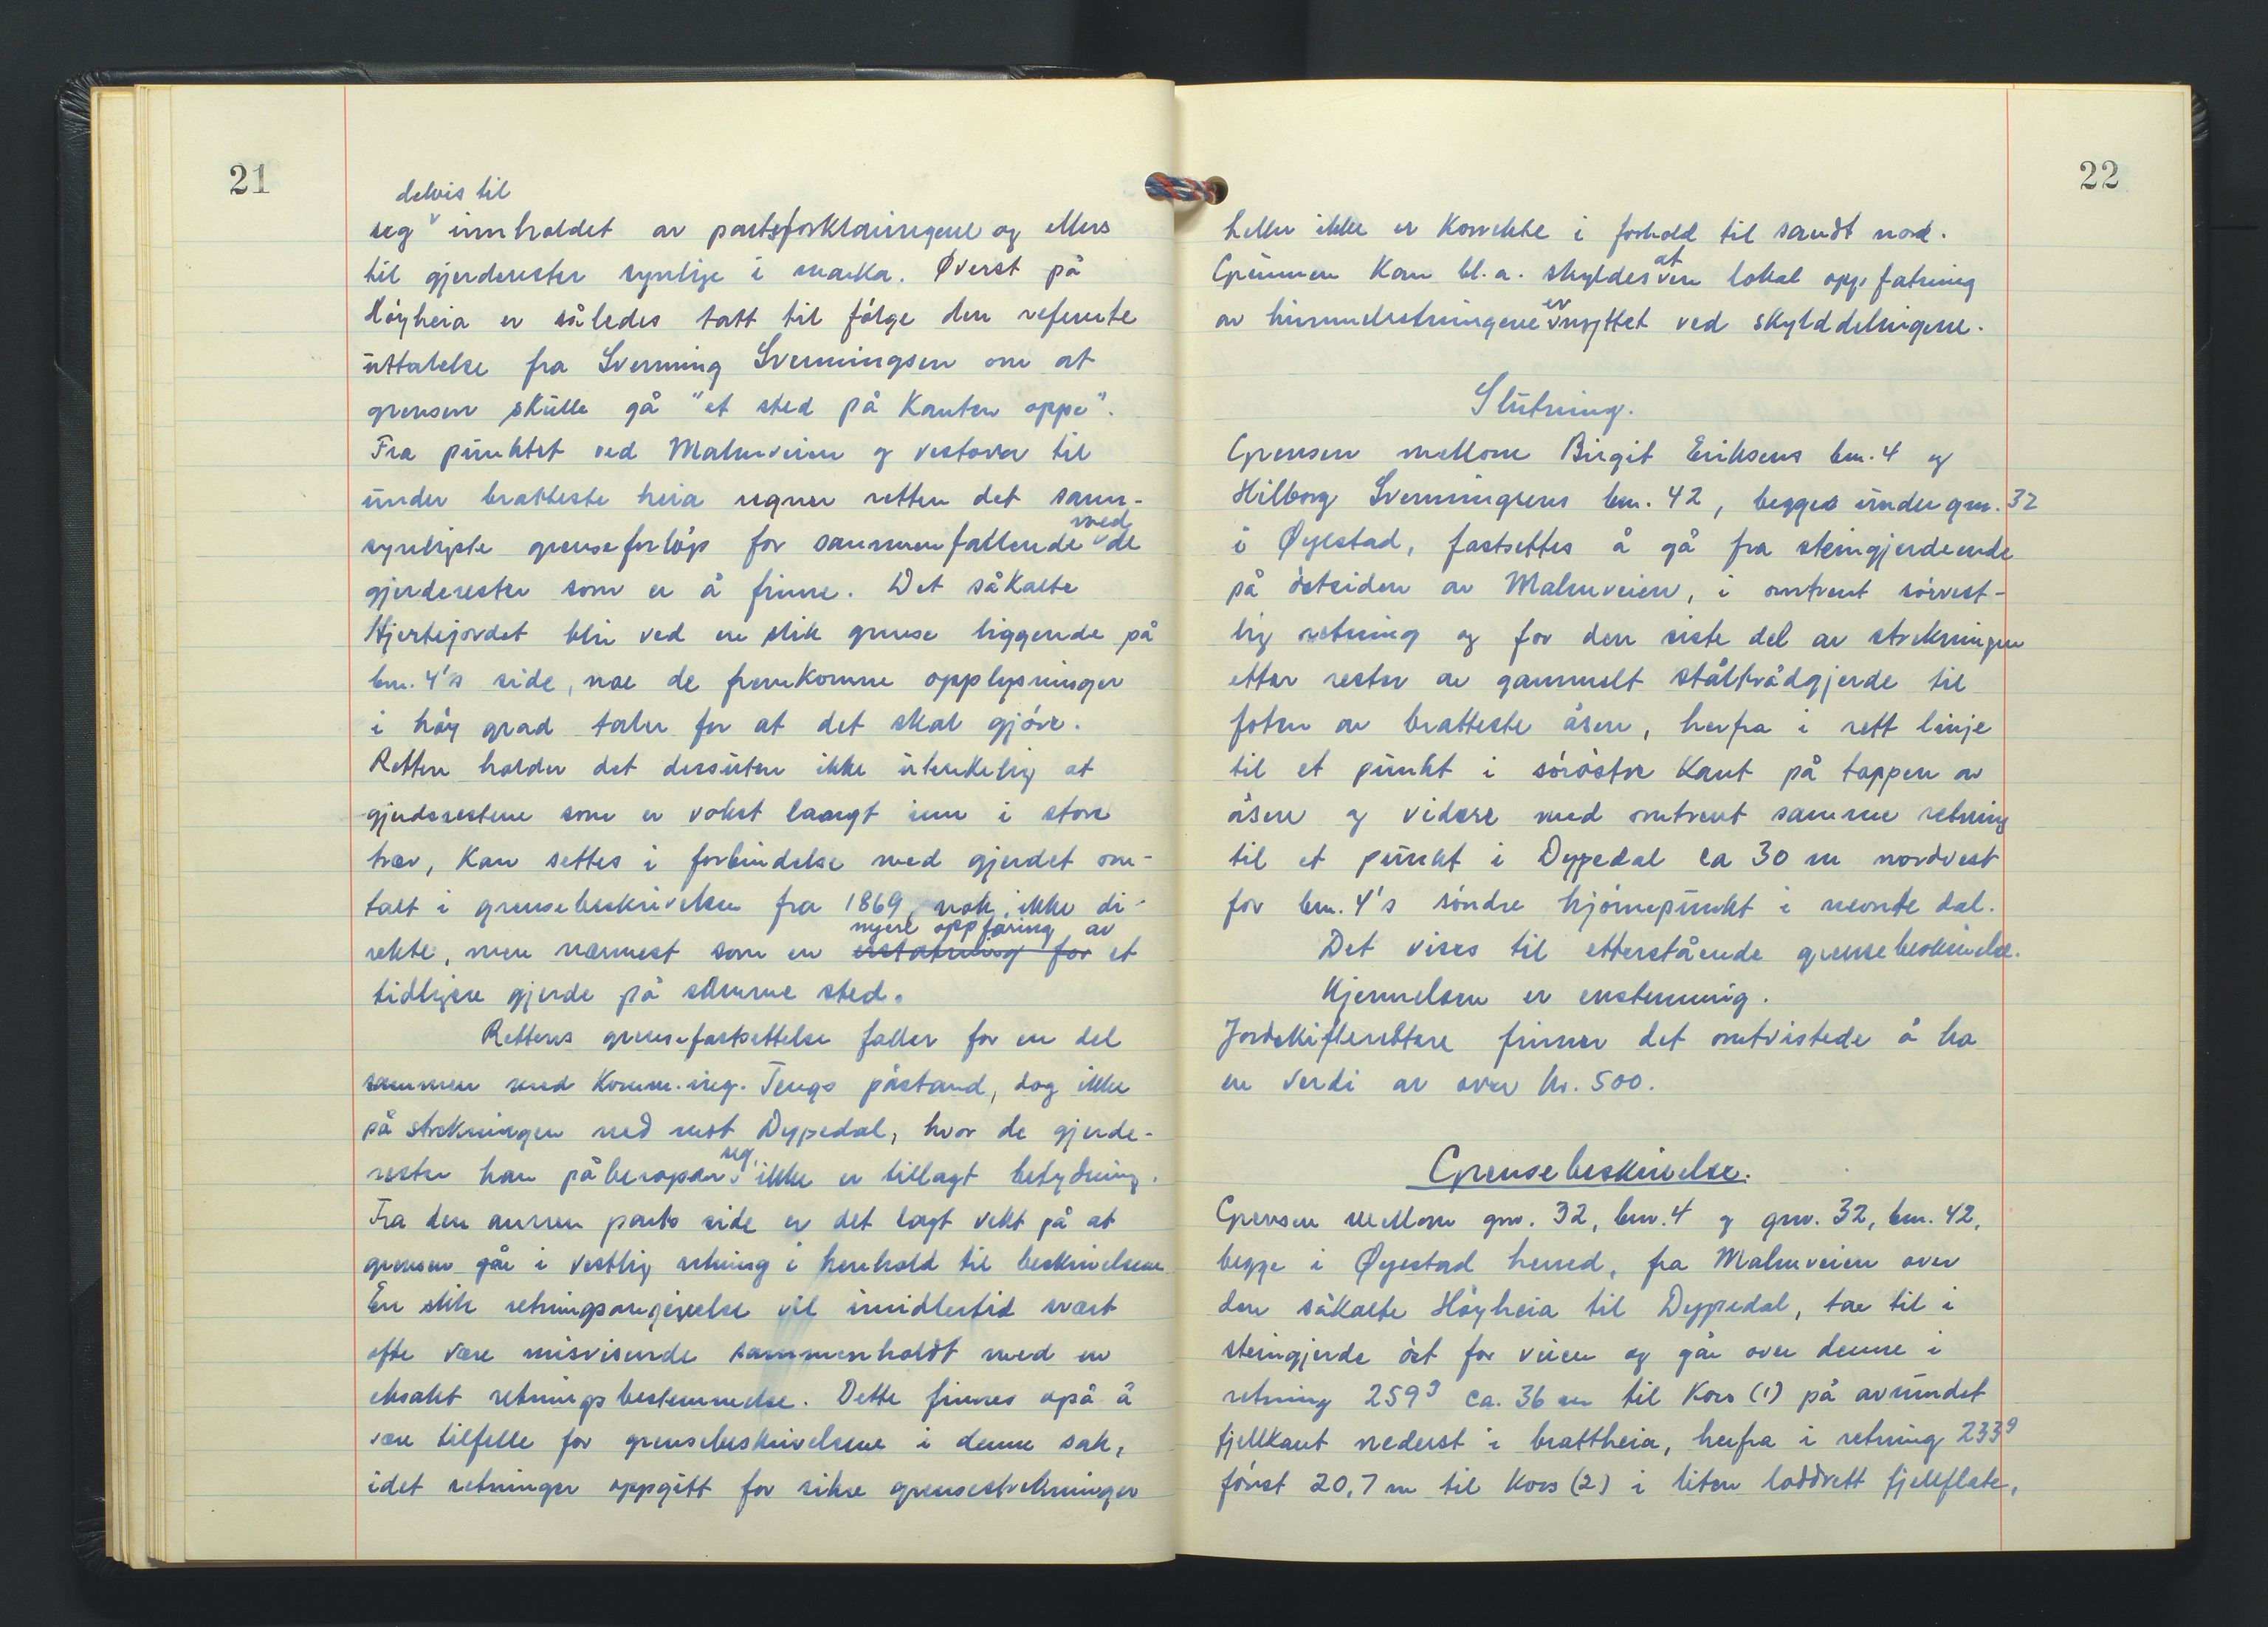 21
delvis til
seg innholdet av partsforklaringene og ellers
til gjerderester synlige i marka. Øverst på
Höyheia er således tatt til følge den refererte
uttalelse fra Svenning Svenningsen om at
grensen skulle gå "et sted på kanten oppe".
Fra punktet ved Malmveien og vestover til
under bratteste heia regner retten det sann-
synligste grenseforlöp for sammenfallende med de
gjerderester som er å finne. Det såkalte
Hjertejordet blir ved en slik grense liggende på
bnr. 4's side, noe de fremkomne opplysninger
i höy grad taler for at det skal gjöre.
Retten holder det dessuten ikke utenkelig at
gjerderestene som er vokst langt inn i store
trær, kan settes i forbindelse med gjerdet om-
talt i grensebeskrivelsen fra 1869, nok ikke di-
nyere oppföring av
rekte, men nærmest som en erstatning for et
tidligere gjerde på samme sted.
Rettens grensefastsettelse faller for en del
sammen med Komm.ing. Tengs påstand, dog ikke
på strekningen ned mot Dypedal, hvor de gjerde-
rester han påberoper seg, ikke er tillagt betydning.
Fra den annen parts side er det lagt vekt på at
grensen går i vestlig retning i henhold til beskrivelsene.
En slik retningsangivelse vil imidlertid svært
ofte være misvisende sammenholdt med en
eksakt retningsbestemmelse. Dette finnes også å
være tilfelle for grensebeskrivelsene i denne sak,
idet retninger oppgitt for sikre grensestrekninger
22
heller ikke er korrekte i forhold til sandt nord.
Grunnen kan bl.a. skyldes at en lokal oppfatning
av himmelretningene er nyttet ved skylddelingene.
Slutning.
Grensen mellom Birgit Eriksens bnr. 4 og
Hilborg Svenningsens bnr. 42, begges under gnr. 32
i Øyestad, fastsettes å gå fra steingjerdeende
på östsiden av Malmveien, i omtrent sörvest-
lig retning og for den siste del av strekningen
etter rester av gammelt ståltrådgjerde til
foten av bratteste åsen, herfra i rett linje
til et punkt i söröstre kant på toppen av
åsen og videre med omtrent samme retning
til et punkt i Dypedal ca 30 m nordvest
for bnr. 4's söndre hjörnepunkt i nevnte dal.
Det vises til etterstående grensebeskrivelse.
Kjennelsen er enstemmig.
Jordskifteretten finner det omtvistede å ha
en verdi av over kr. 500.
Grensebeskrivelse.
Grensen mellom gnr. 32, bnr. 4 og gnr. 32, bnr. 42,
begge i Øyestad herred, fra Malmveien over
den såkalte Höyheia til Dypedal, tar til i
steingjerde öst for veien og går over denne i
retning 259g ca. 36 m til Kors (1) på avrundet
fjellkant nederst i brattheia, herfra i retning 233g
först 20,7 m til Kors (2) i liten loddrett fjellflate,